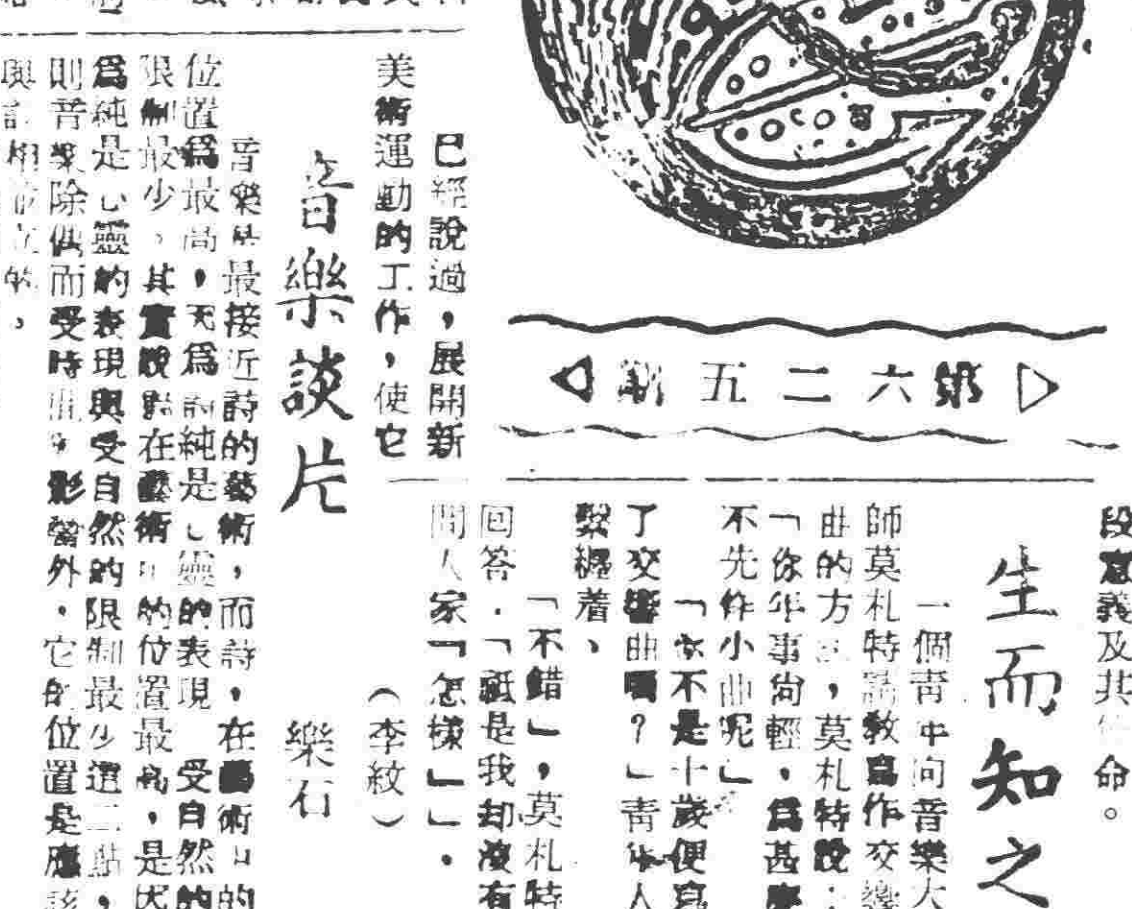 段意義及其　命。
生而知之
一個青年向音樂大
師莫札特請教寫作交響
曲的方　，莫札特說：
「你年事尚輕，爲甚麼
不先作小曲呢」
「你不是十歲便寫
了交響曲嗎？」青年人
緊纏着、
「不錯」，莫札特
回答．「祇是我却沒有
問人家「怎樣」」．
（李紋）
第六二五期
已經說過，展開新
美術運動的工作，使它
音樂談片
樂石
音樂是最接近詩的藝術，而詩，在藝術　的
位置爲最高，　爲詩純是心靈的表現　受自然的
限制最少。其實說　在藝術　的位置最高，是因
爲純是心靈的表現與受自然的限制最少這二點，
則音樂除供而受時　影響外．它的位置是應該
與詩相　立的、